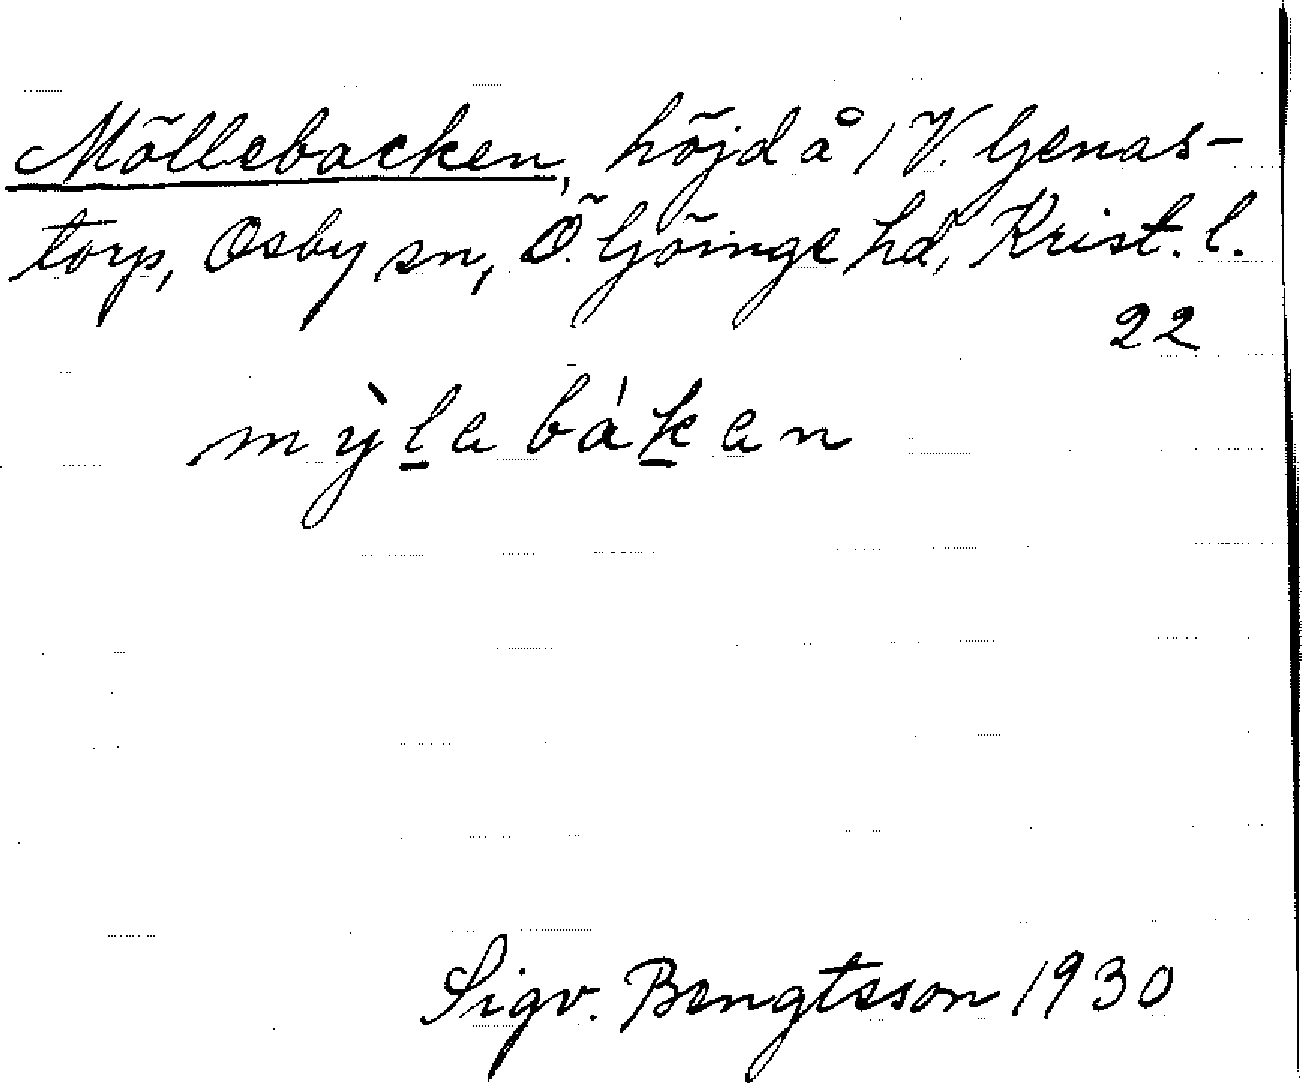 Möllebacken, höjd å 1 V. Genas-
torp, Osby sn, Ö. Göinge hd, Krist. l.
22
mỳl̲a bák̲an
Sigv. Bengtsson 1930